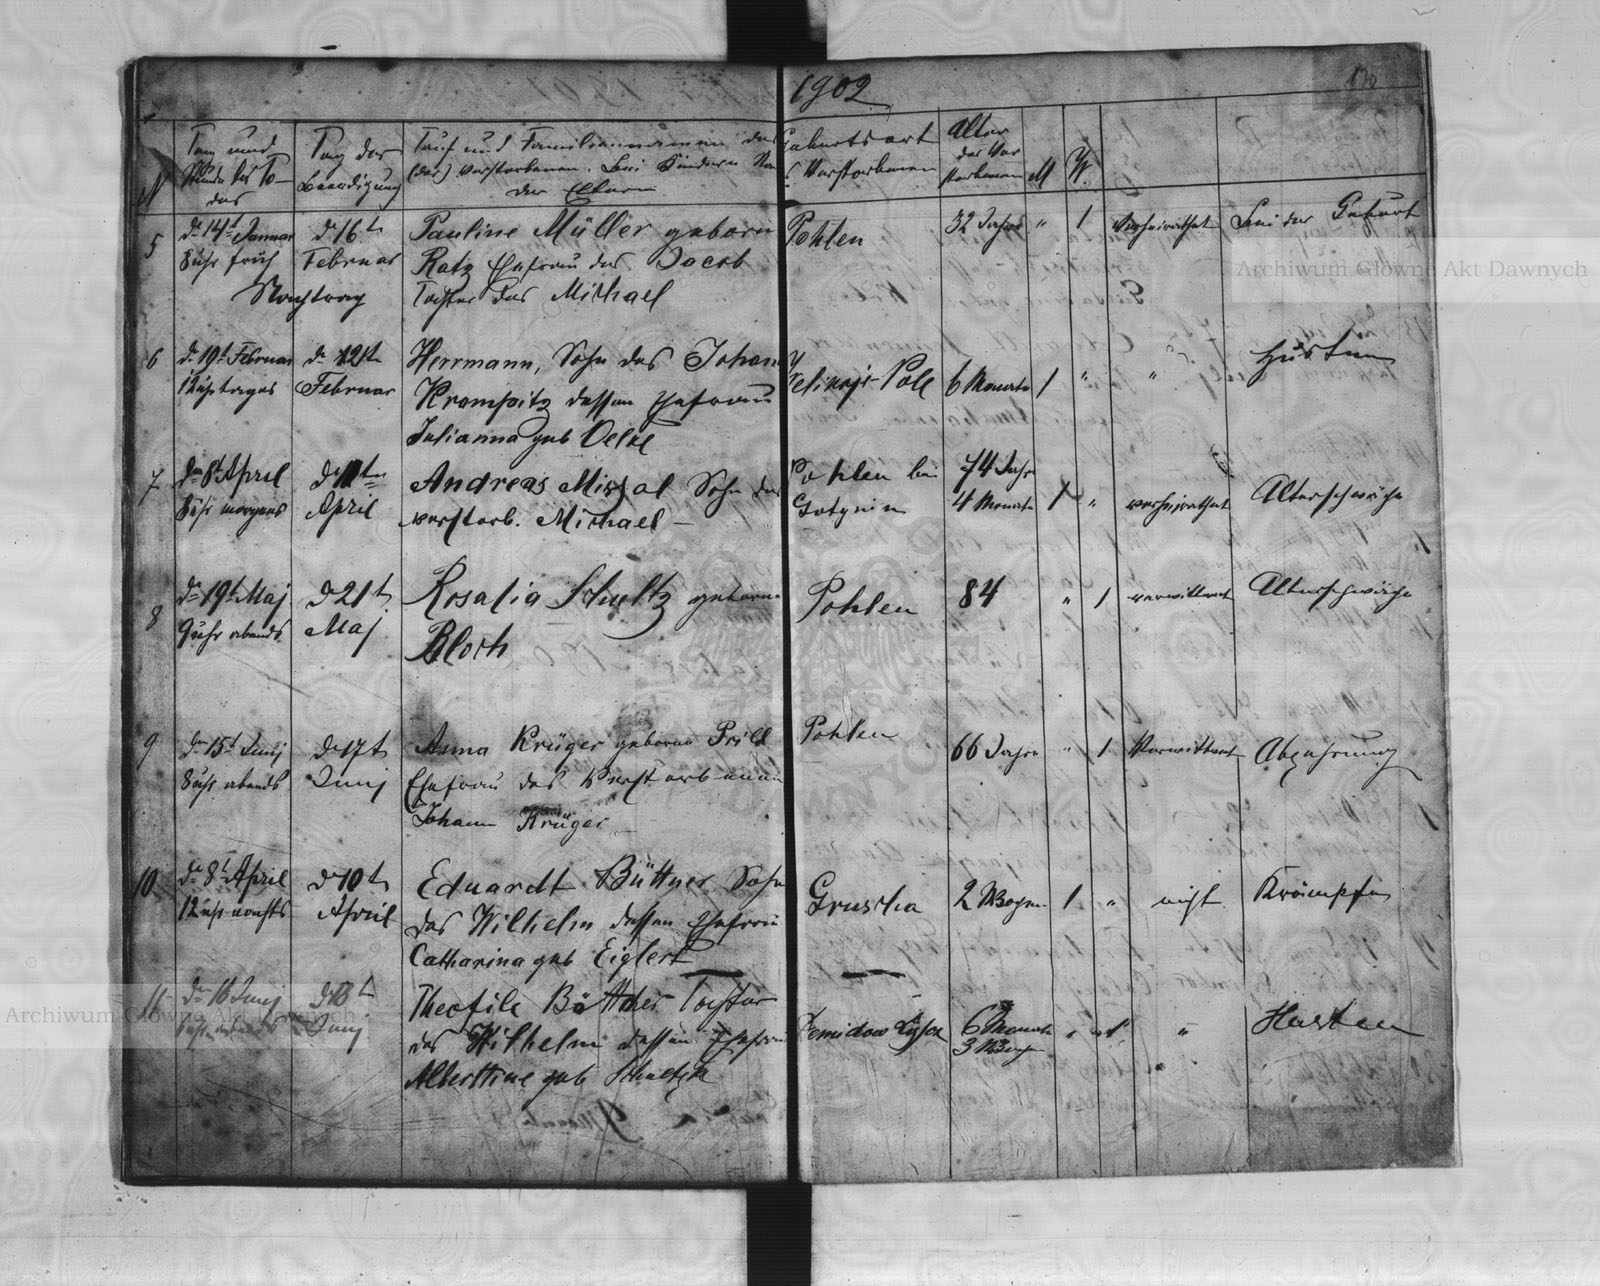 1902
130
N
Tag und
Stunde des To-
des
Tag der
Beerdigung
Tauf und Familiennamen des
(der) Verstorbenen. Bei Kindern Na
der Eltern
Geburtsort
Verstorbenen
Alter
des Ver
storbenen
M
W.
5
d. 14t Januar
8 uhr früh
Nachtrag
d. 16t
Februar
Pauline Müller geborn
Ratz Ehefrau des Jacob
Tochter des Michael
Pohlen
32 Jahre
"
1
Verheirathet
Bei der Geburt
6
d. 19t Februar
12 uhr tages
d. 21t
Februar
Herrmann, Sohn des Johan
Krampitz dessen Ehefrau
Julianna geb Oelke
Pole
6 Monate
1
"
"
Husten
7
d. 8t April
8 uhr morgens
April
Andreas Missal Sohn des
verstorb. Michael —
Pohlen bei
74 Jahr
4 Monate
1
"
verheirathet
Alterschwäche
8
d. 19t Maj
9 uhr abends
d. 21t
Maj
Rosalia Schultz geborne
Bloch
Pohlen
84
"
1
verwittwet
Alterschwäche
9
d. 15t Junj
8 uhr abends
d. 17t
Junj
Anna Krüger geborne Prill
Ehefrau des Verstorbenen
Johann Krüger
Pohlen
66 Jahre
"
1
Verwittwet
Abzehrung
10
d. 8t April
12 uhr nachts
d. 10t
April
Eduardt Büttner Sohn
des Wilhelm dessen Ehefrau
Catharina geb Eiglert
Gruscha
2 Wochen
1
"
nicht
Krämpfe
11
d. 16 Junj
8 uhr abends
d. 18t
Junj
Theofile Büttner Tochter
des Wilhelm dessen Ehefrau
Alberttine geb Schultzk
6 Monate
3 Woch
"
1
"
Husten
Archiwum Główne Akt Dawnych
Archiwum Główne Akt Dawnych